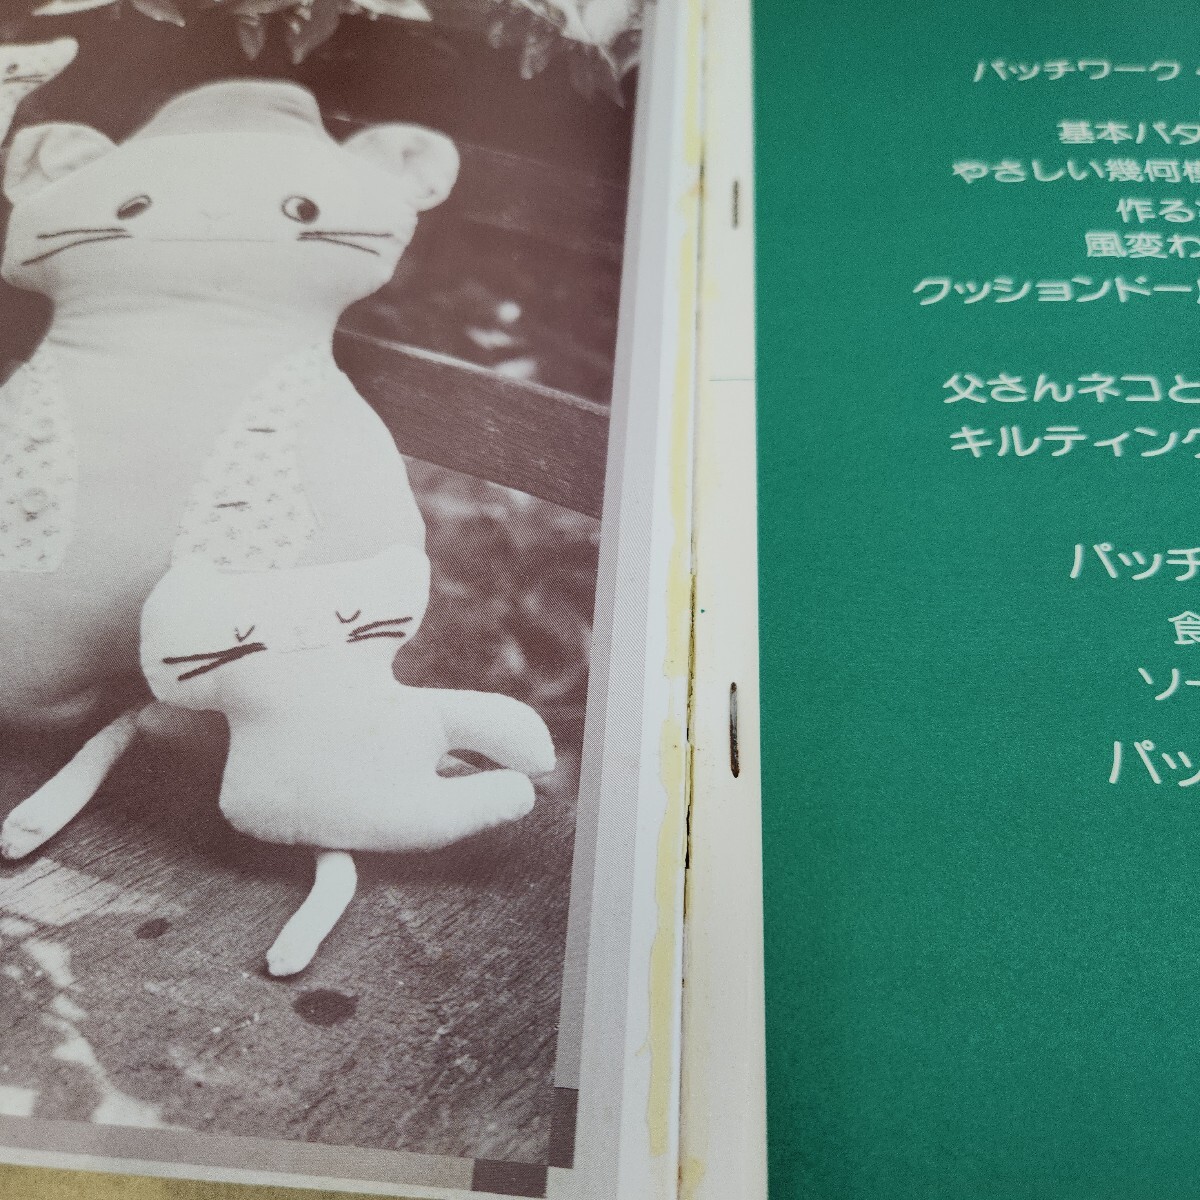 パッチワーク・
基本パタ
やさしい幾何模
作る
風変わ
クッションドー
父さんネコと
キルティング
パッチ
食
ソー
パッ